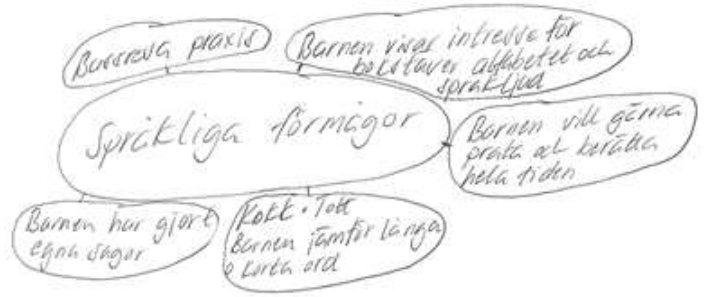 praxis
Barnen visar intresse för
bokstäver alfabetet och
språkljud
Språkliga förmågor
Barnen vill gärna
prata och berätta
hela tiden
Barnen har gjort
egna sagor
Barnen jämför långa
o korta ord